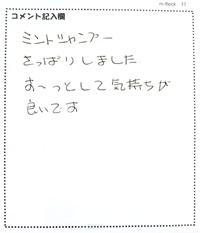 m-flock 11
コメント記入欄
ミントシャンプー
さっぱりしました
す〜っとして気持ちが
良いです